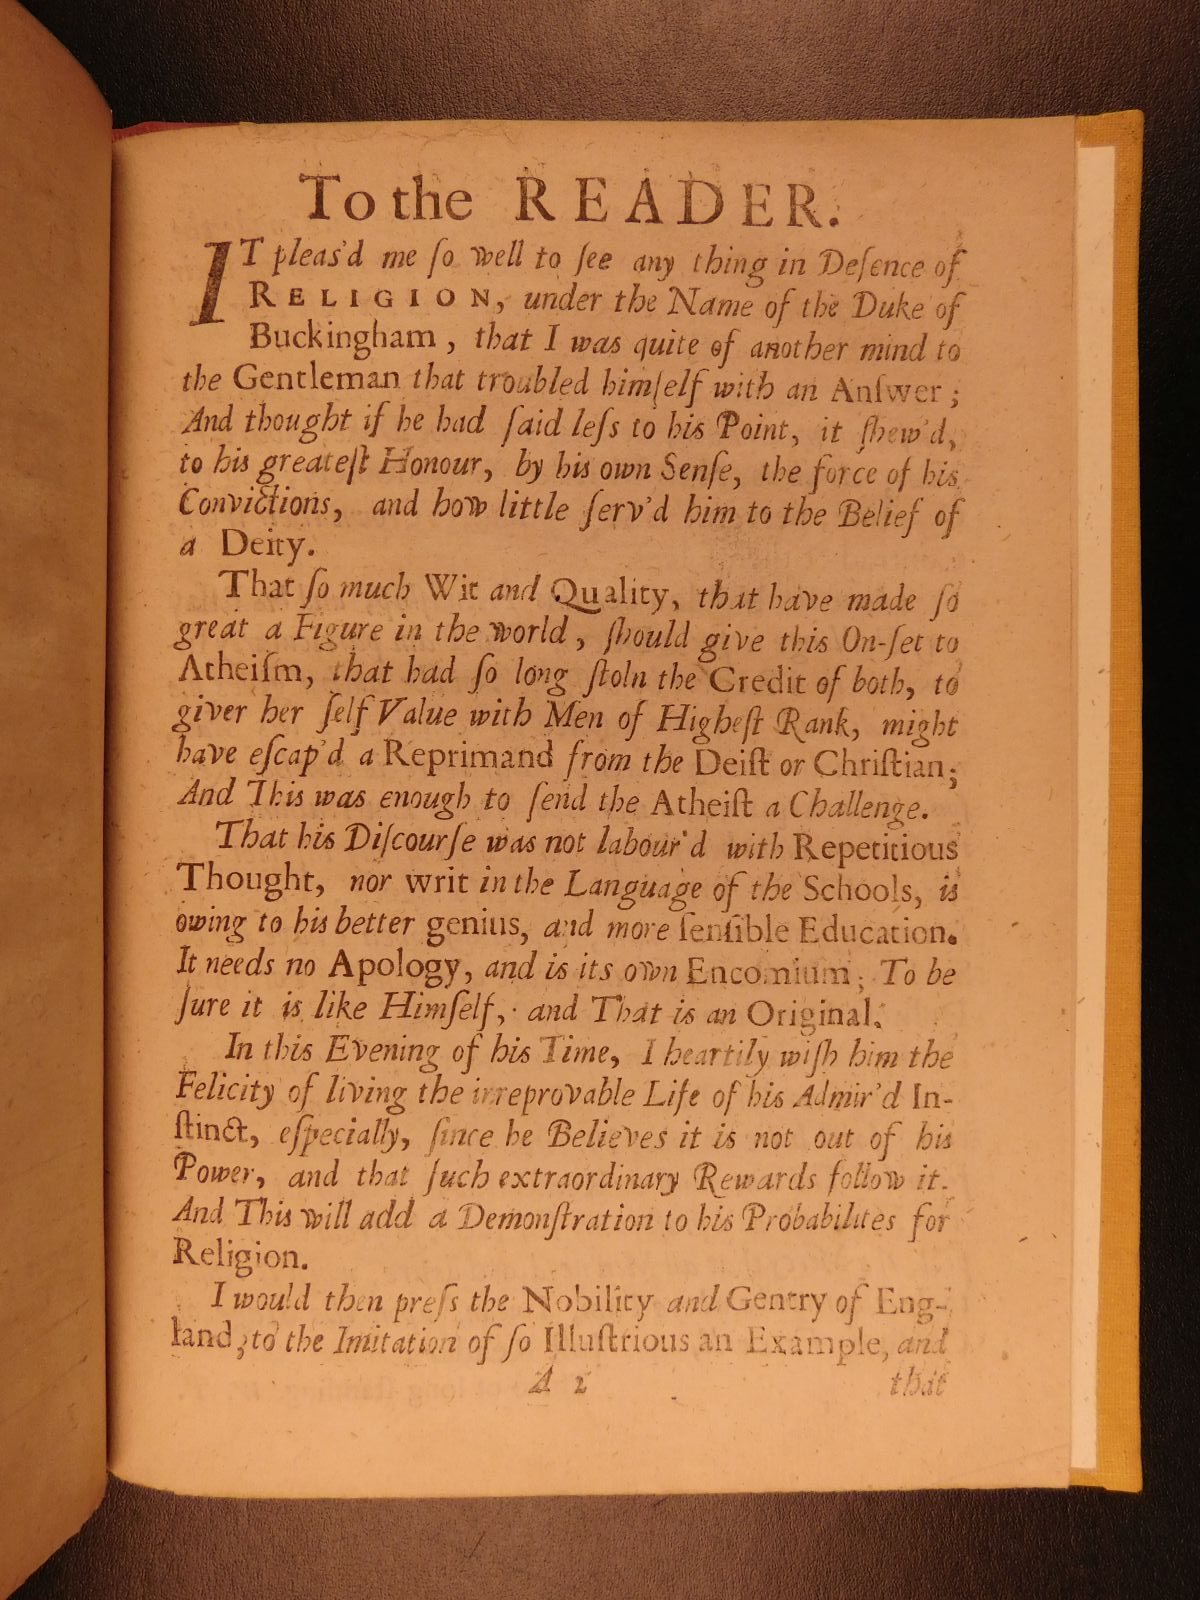 To the READER.
IT pleas'd me ſo well to ſee any thing in Defence of
RELIGION, under the Name of the Duke of
Buckingham, that I was quite of another mind to
the Gentleman that troubled himſelf with an Anſwer;
And thought if he had ſaid leſs to his Point, it ſhew'd,
to his greateſt Honour, by his own Senſe, the force of his
Convictions, and how little ſerv'd him to the Belief of
a Deity.
That ſo much Wit and Quality, that have made ſo
great a Figure in the world, ſhould give this On-ſet to
Atheiſm, that had ſo long ſtoln the Credit of both, to
giver her ſelf Value with Men of Higheſt Rank, might
have eſcap'd a Reprimand from the Deiſt or Chriſtian;
And This was enough to ſend the Atheiſt a Challenge.
That his Diſcourſe was not labour'd with Repetitious
Thought, nor writ in the Language of the Schools, is
owing to his better genius, and more ſenſible Education.
It needs no Apology, and is its own Encomium; To be
ſure it is like Himſelf, and That is an Original.
In this Evening of his Time, I heartily wiſh him the
Felicity of living the irreprovable Life of his Admir'd In-
ſtinct, eſpecially, ſince he Believes it is not out of his
Power, and that ſuch extraordinary Rewards follow it.
And This will add a Demonſtration to his Probabilites for
Religion.
I would then preſs the Nobility and Gentry of Eng-
land, to the Imitation of ſo Illuſtrious an Example, and
A 2 that